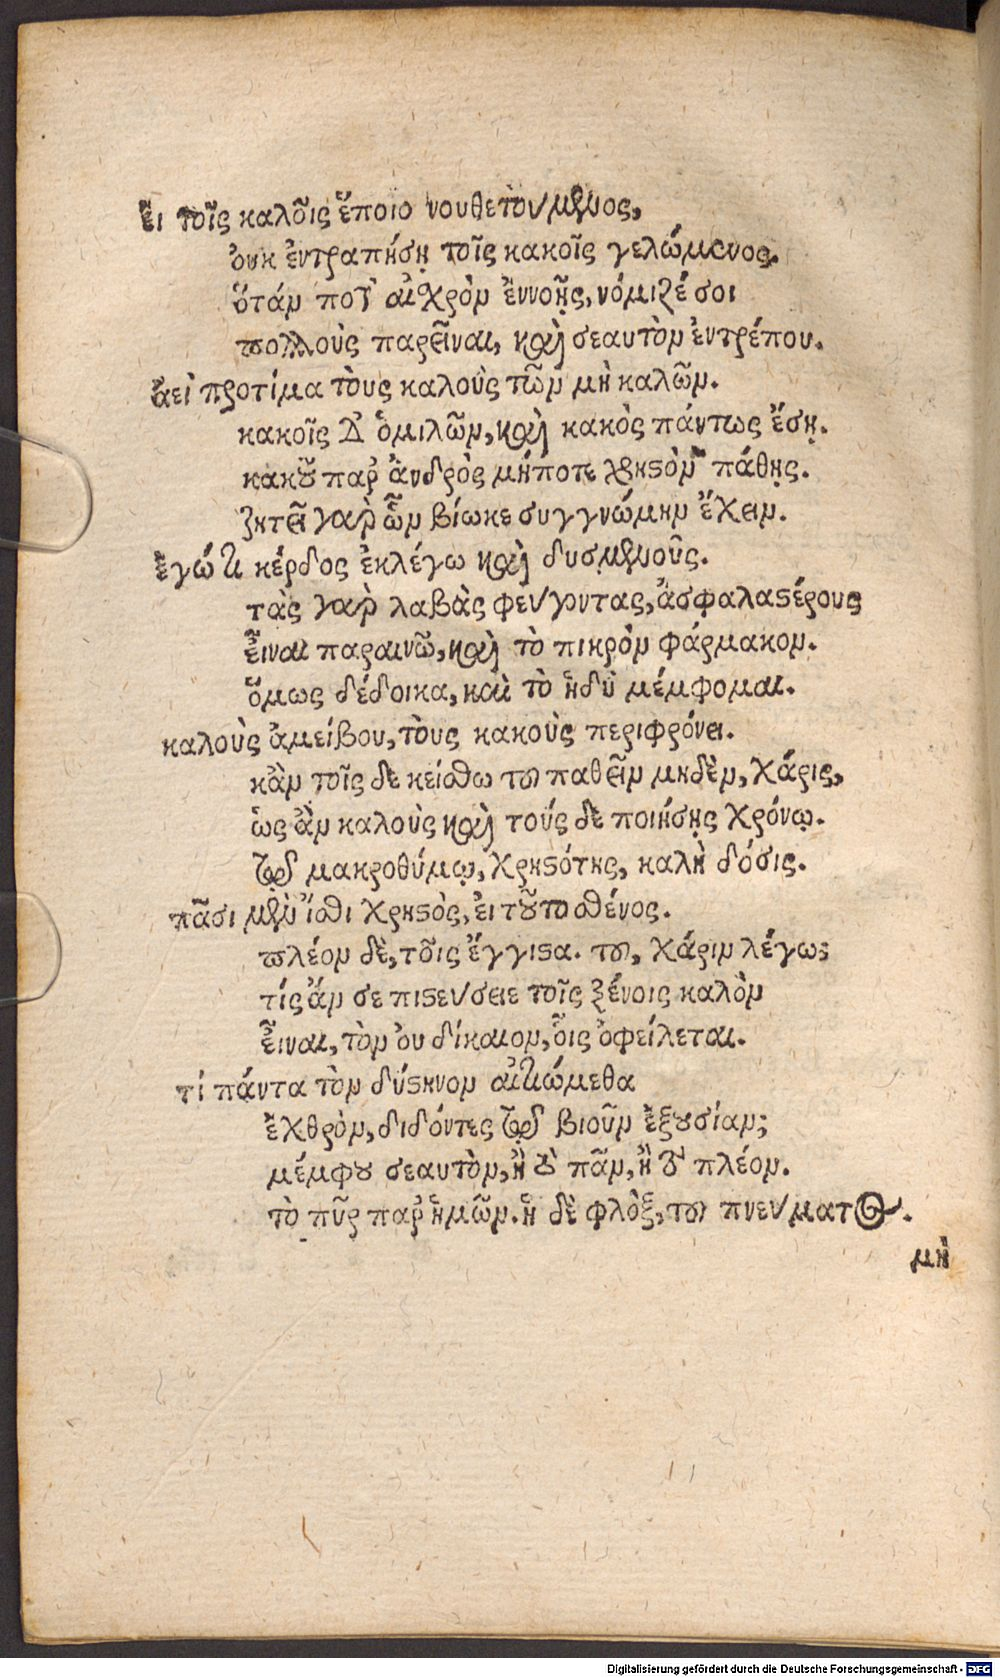 ἒι τοῖς καλοῖς ἕποιο νουθετούμενος,
ὀυκ ἐντραπήσῃ τοῖς κακοῖς γελώμενος.
ὅτάν που αἰχρὸν ἐννοῇς, νόμιζέ σοι
πολλοὺς παρεῖναι, καὶ σεαυτὸν ἐντρέπου.
ἀεὶ προτίμα τοὺς καλοὺς τῶν μὴ καλῶν.
κακοῖς δ' ὁμιλῶν, καὶ κακὸς πάντως ἔσῃ.
κακοῦ παρ' ἀνδρὸς μήποτε χρηστὸν πάθῃς.
ζητεῖ γαρ ὧν βίωκε συγγνώμην ἔχειν.
ἐγώ κέρδος ἐκλέγω καὶ δυσμενοῦς.
τὰς γαρ λαβὰς φεύγοντας, ἀσφαλαστέρους
εἶναι παραινῶ, καὶ τὸ πικρὸν φάρμακον.
ὅμως δέδοικα, καὶ τὸ ἡδὺ μέμφομαι.
καλοὺς ἀμείβου, τοὺς κακοὺς περιφρόνει.
κἂν τοῖς δὲ κείσθω του παθεῖν μηδὲν, χάρις,
ὡς ἂν καλοὺς καὶ τούς δε ποιήσῃς χρόνῳ.
τῷ μακροθύμῳ, χρηστότης, καλὴ δόσις.
πᾶσι μὲν ἴσθι χρηστὸς, ἐι τοῦτο σθένος.
πλέον δὲ, τοῖς ἔγγιστα. του, χάριν λέγω;
τίς ἄν σε πιστεύσειε τοῖς ξένοις καλὸν
εἶναι, τὸν ὀυ δίκαιον, οἷς ὀφείλεται.
τί πάντα τὸν δύστηνον αἰτιώμεθα
ἐχθρὸν, διδόντες τῷ βιοῦν ἐξουσίαν;
μέμφου σεαυτὸν, ἢ τὸ πᾶν, ἢ τὸ πλέον.
τὸ πῦρ παρ' ἡμῶν. ἡ δὲ φλὸξ, του πνεύματος.
μὴ
Digitalisierung gefördert durch die Deutsche Forschungsgemeinschaft - DFG